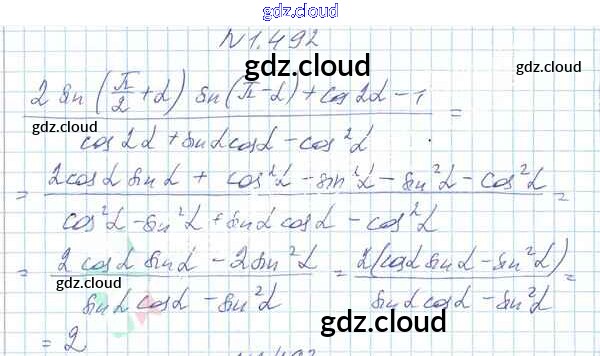 gdz.cloud
N 1.492
gdz.cloud
2 sin (π/2 + α) sin (π - α) + cos 2α - 1 / cos 2α + sin α cos α - cos²α =
gdz.cloud
gdz.cloud
= 2 cos α sin α + cos²α - sin²α - sin²α - cos²α / cos²α - sin²α + sin α cos α - cos²α =
= 2 cos α sin α - 2 sin²α / sin α cos α - sin²α = 2(cos α sin α - sin²α) / sin α cos α - sin²α =
gdz.cloud
gdz.cloud
= 2